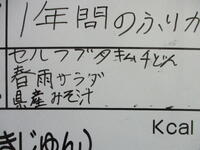 1年間のふりか
セルフブタキムチどん
春雨サラダ
県産みそ汁
Kcal
きじゅん)